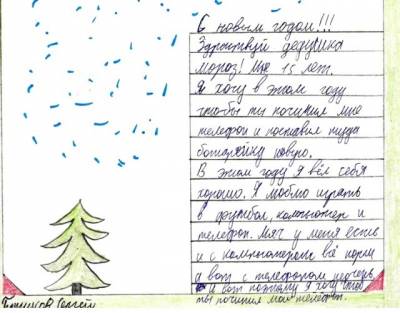 С новым годом!!!
Здраствуй дедушка
мороз! Мне 15 лет.
Я хочу в этом году
чтобы ты починил мне
телефон и поставил туда
батарейку новую.
В этом году я вёл себя
хорошо. Я люблю играть
в футбол, компьютер и
телефон. Мяч у меня есть
и с компьютером всё норм
а вот с телефоном не очень
и вот поэтому я хочу чтоб
ты починил мой телефон.
Сергей